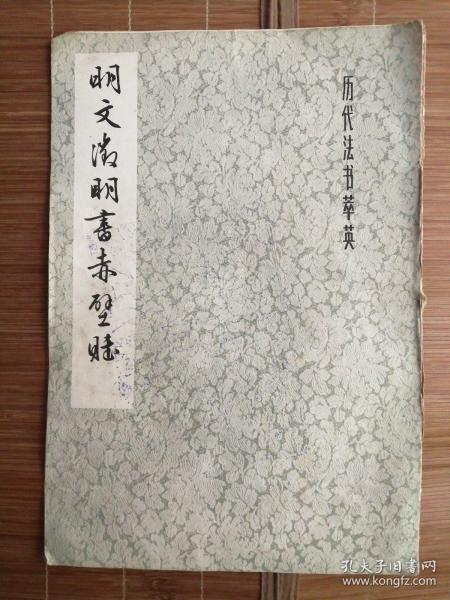 历代法书萃英
明文徵明書赤壁賦
孔夫子旧书网
www.kongfz.com